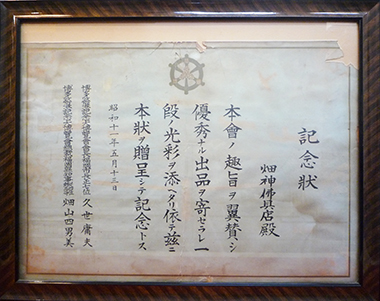 記念狀
畑神佛具店殿
本會ノ趣旨ヲ翼賛シ
優秀ナル出品ヲ寄セラレ一
段ノ光彩ヲ添ヘタリ依テ茲ニ
本狀ヲ贈呈シテ記念トス
昭和十一年五月十三日
久世庸夫
畑山四男美